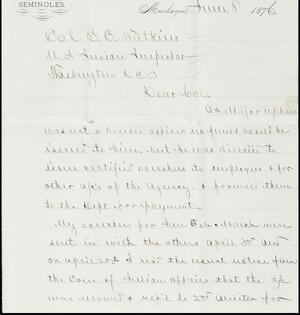 SEMINOLES.
Muskogee, June 8, 1876
Col E. C. Watkins
U S Indian Inspector
Washington D.C.
Dear Col.
As Major Upham
was not a bonded officer no funds could be
issued to him, but he was directed to
issue certified vouchers to employees & for
other a/cs of the Agency. & forward them
to the Dept for payment.
My vouchers for Jan Feb & March were
sent in with the others April 3rd and
on April 22nd I recd the usual notice from
the Com of Indian affairs that the a/c
was allowed & refd to 2nd Auditor for